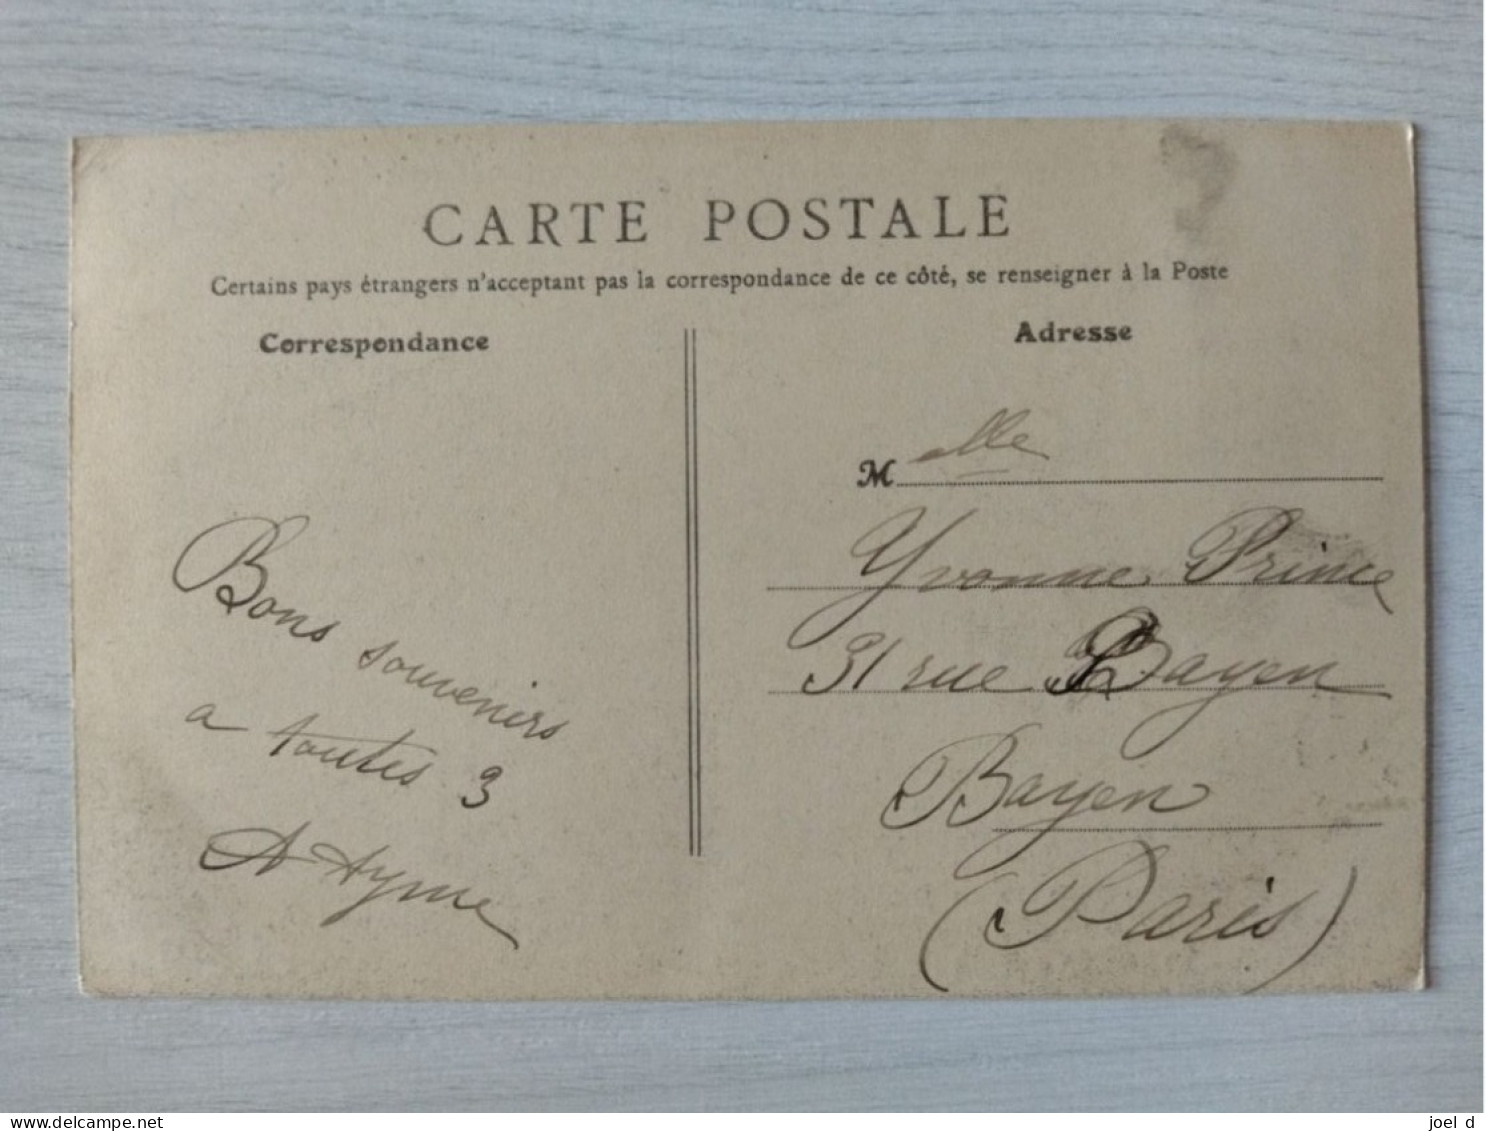 CARTE POSTALE
Certains pays étrangers n'acceptant pas la correspondance de ce côté, se renseigner à la Poste
Correspondance
Bons souvenirs
a toutes 3
A Ayme
Adresse
Melle
Yvonne Prince
31 rue Bayen
Bayen
(Paris)
joel d